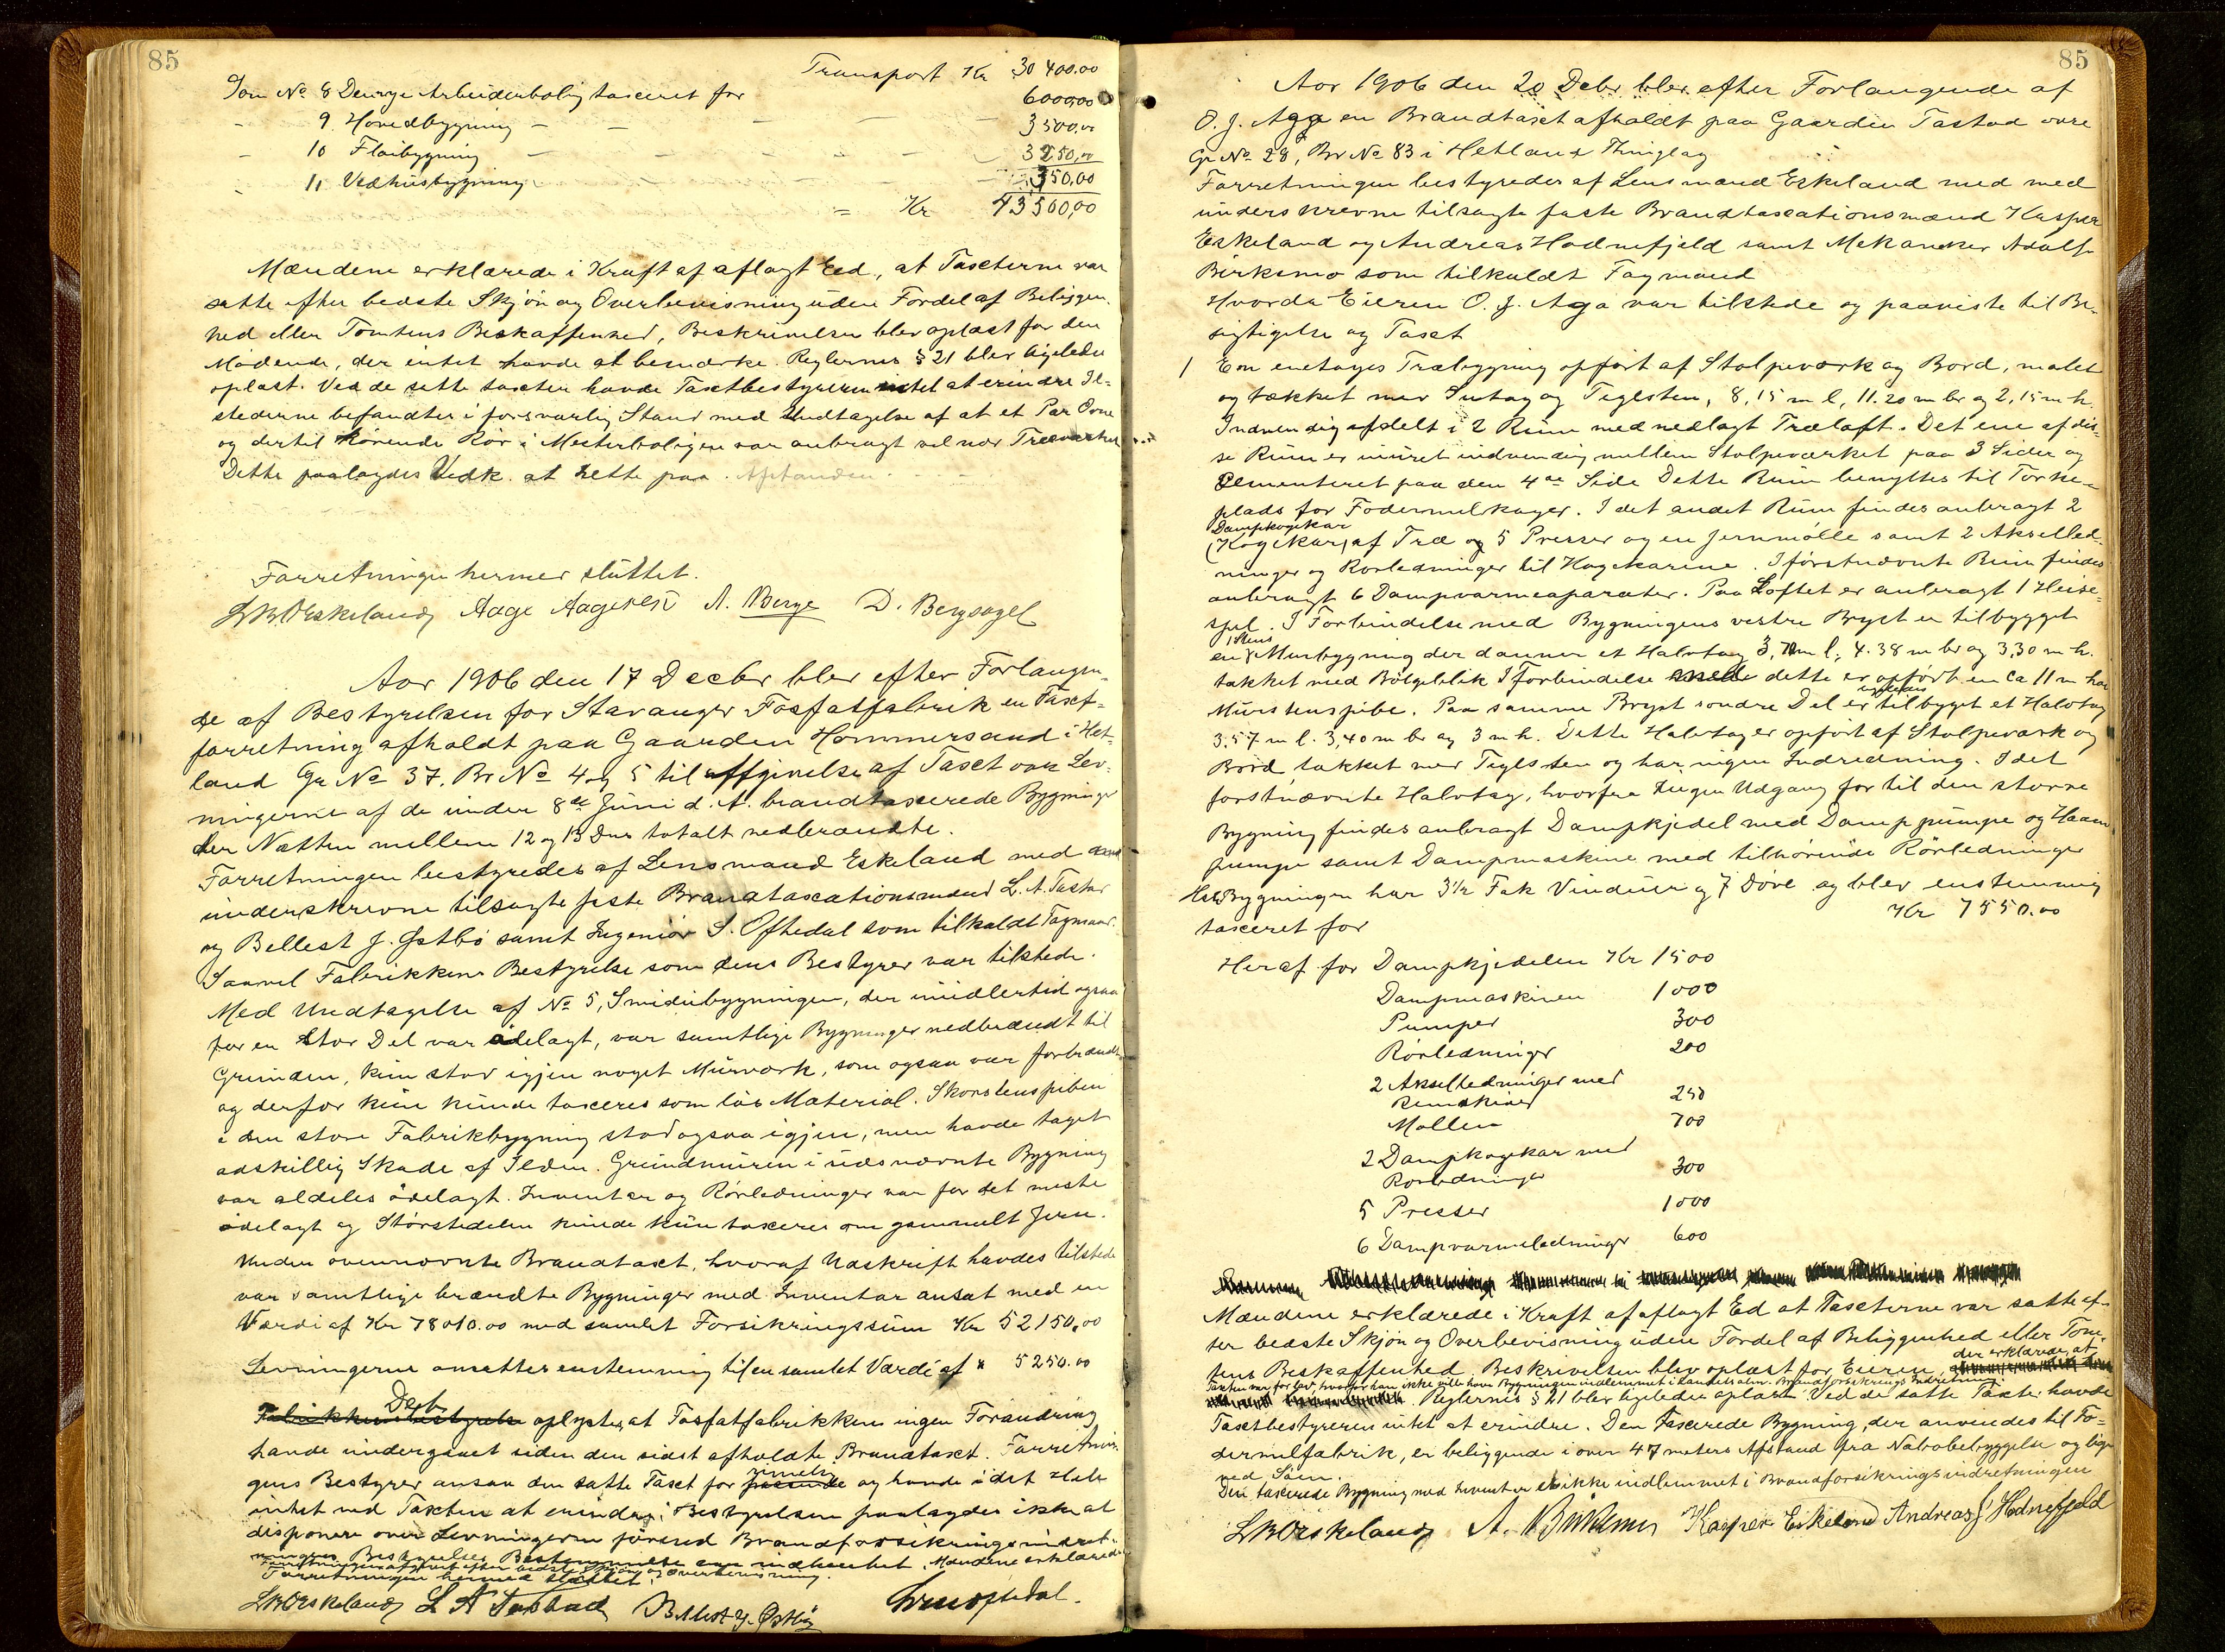 85
Transport Kr 30400.00
Som No 8 Denrye Arbeiderbolig taxeret for 6000,00
- 9. Hovedbygning - - - - - 3500.00
- 10 Fløibygning - - - - - 3250,00
- 11 Vedhusbygning - - - - 350,00
= Kr 43500,00
Mændene erklærede i Kraft af aflagt Eed, at Taxterne var
satte efter bedste Skjøn og Overbevisning uden Fordel af Beliggen-
hed eller Tomtens Beskaffenhed, Beskrivelsen blev oplæst for den
Mødende, der intet havde at bemærke. Reglernes § 21 blev ligeledes
oplæst. Ved de satte taxter havde Taxtbestyreren intet at erindre Il-
stederne befandtes i forsvarlig Stand med Undtagelse af at et Par Ovne
og dertil hørende Rør i Mesterboligen var anbragt vel nær Træværket
Dette paalagdes Vedk. at rette paa. Aftanden
Forretningen hermed sluttet.
LWEskeland Aage Aagesen A. Berge D. Bergsagel
Aar 1906 den 17 Decbr blev efter Forlangen-
de af Bestyrelsen for Stavanger Fosfatfabrik en Taxt-
forretning afholdt paa Gaarden Hommersand i Het-
land Gr No 37. Br No 4 og 5 til affgivelse af Taxt over Lev-
ningerne af de under 8de Juni d. A. brandtaxerede Bygninger
der Natten mellem 12 og 13 Dns totalt nedbrændte.
Forretningen bestyredes af Lensmand Eskeland med
underskrevne tilsagte faste Brandtaxationsmænd L. A. Tastad
og Bellest J. Østbø samt Ingeniør S. Oftedal som tilkaldt Fagmand.
Saavel Fabrikkens Bestyrelse som dens Bestyrer var tilstede.
Med Undtagelse af No 5, Smidiebygningen, der imidlertid ogsaa
for en Stor Del var ødelagt, var samtlige Bygninger nedbrændt til
Grunden, kun stod igjen noget Murværk, som ogsaa var forbrændt
og derfor kun kunde taxeres som løs Material. Skorstenspiben
i den store Fabrikbygning stod ogsaa igjen, men havde taget
adskillig Skade af Ilden. Grundmuren i sidsnævnte Bygning
var aldeles ødelagt. Inventar og Rørledninger var for det meste
ødelagt og Størstedelen kunde kun taxeres om gammelt Jern.
Under ovennævnte Brandtaxt, hvoraf Udskrift havdes tilstede
var samtlige brændte Bygninger med Inventar ansat med en
Værdi af Kr 78010.00 med samlet Forsikringssum Kr 52150,00
Levningerne ansattes enstemmig til en samlet Værdi af " 5250.00
Fabrikkens Bestyrelse oplystes at Fosfatfabrikken ingen Forandring
havde undergaaet siden den sidst afholdte Brandtaxt. Forretnin-
gens Bestyrer ansaa den satte Taxt for passende rimelig og havde i det Hele
intet ved Taxten at erindre; Bestyrelsen paalagdes ikke at
disponere over Levningerne førend Brandforsikringsindret-
ningens Bestyrelses Bestemmelse om indhentet. Mændene erklærede
Forretningen afgivet efter bedste Skjøn og Overbevisning.
Forretningen hermed sluttet.
LWEskeland L A Tastad Bellest J. Østbø Oftedal.
85
Aar 1906 den 20 Debr blev efter Forlangende af
O. J. Aga en Brandtaxt afholdt paa Gaarden Tastad øvre
Gr No 28, Br No 83 i Hetland Thinglag
Forretningen bestyredes af Lensmand Eskeland med med
underskrevne tilsagte faste Brandtaxationsmænd Kasper
Eskeland og Andreas Hodnefjeld samt Mekaniker Adolf
Birksmo som tilkaldt Fagmand
Hvorda Eieren O. J. Aga var tilstede og paaviste til Be-
sigtigelse og Taxt
1 En enetages Træbygning opført af Stolpeværk og Bord, malet
og tækket med Sutag og Teglsten, 8,15 m l, 11.20 m br og 2,15 m h.
Indvendig afdelt i 2 Rum med nedlagt Træloft. Det ene af dis-
se Rum er muret indvendig mellem Stolpeværket paa 3 Sider og
Cementeret paa den 4de Side Dette Rum benyttes til Tørke-
plads for Fodermelkager. I det andet Rum findes anbragt 2
Dampkogekar
(Kogekar) af Træ og 5 Presser og en Jernmølle samt 2 Akselled-
ninger og Rørledninger til Kogekarene. I førstnævnte Rum findes
anbragt 6 Dampvarmeaparater. Paa Loftet er anbragt 1 Heise-
spel. I Forbindelse med Bygningens vestre Bryst er tilbygget
1 Stens
en Murbygning der danner et Halvtag 3,70 m l, 4.38 m br og 3,30 m h.
tækket med Bølgeblik I forbindelse med dette er opført en ca 11 m høi
Murstenspibe. Paa samme Bryst søndre Del er ligeledes tilbyget et Halvtag
3.57 m l. 3,40 m br og 3 m h. Dette Halvtag er opført af Stolpeværk og
Bord, tækket med Teglsten og har ingen Indredning. I det
førstnævnte Halvtag, hvorfra Ingen Udgang for til den større
Bygning findes anbragt Dampkjedel med Damppumpe og Haand
pumpe samt Dampmaskine med tilhørende Rørledninger
Hele Bygningen har 3½ Fak Vinduer og 7 Døre og blev enstemmig
taxeret for Kr 7550.00
Heraf for Dampkjedelen Kr 1500
Dampmaskinen 1000
Pumper 300
Rørledninger 200
2 Akselledninger med
Remskiver 250
Møllen 700
2 Dampkogekar med
Rørledninger 300
5 Presser 1000
6 Dampvarmeledninger 600
Mændene erklærede i Kraft af aflagt Ed at Taxterne var satte ef-
ter bedste Skjøn og Overbevisning uden Fordel af Beliggenhed eller Tom-
tens Beskaffenhed. Beskrivelsen blev oplæst for Eieren, der erklærede, at
Taxten var for lav, hvorfor han ikke vilde have Bygningen indlemmet i Landets alm. Brandforsikrings Indretning.
Reglernes § 21 blev ligeledes oplæst. Ved de satte Taxter havde
Taxtbestyreren intet at erindre. Den taxerede Bygning, der anvendes til Fo-
dermelfabrik, er beliggende i over 47 meters Afstand fra Nabobebyggelse og lige
ved Søen.
Den taxerede Bygning med Inventar er ikke indlemmet i Brandforsikringsindretningen
LWEskeland A. Birksmo Kasper Eskeland Andreas J Hodnefjeld